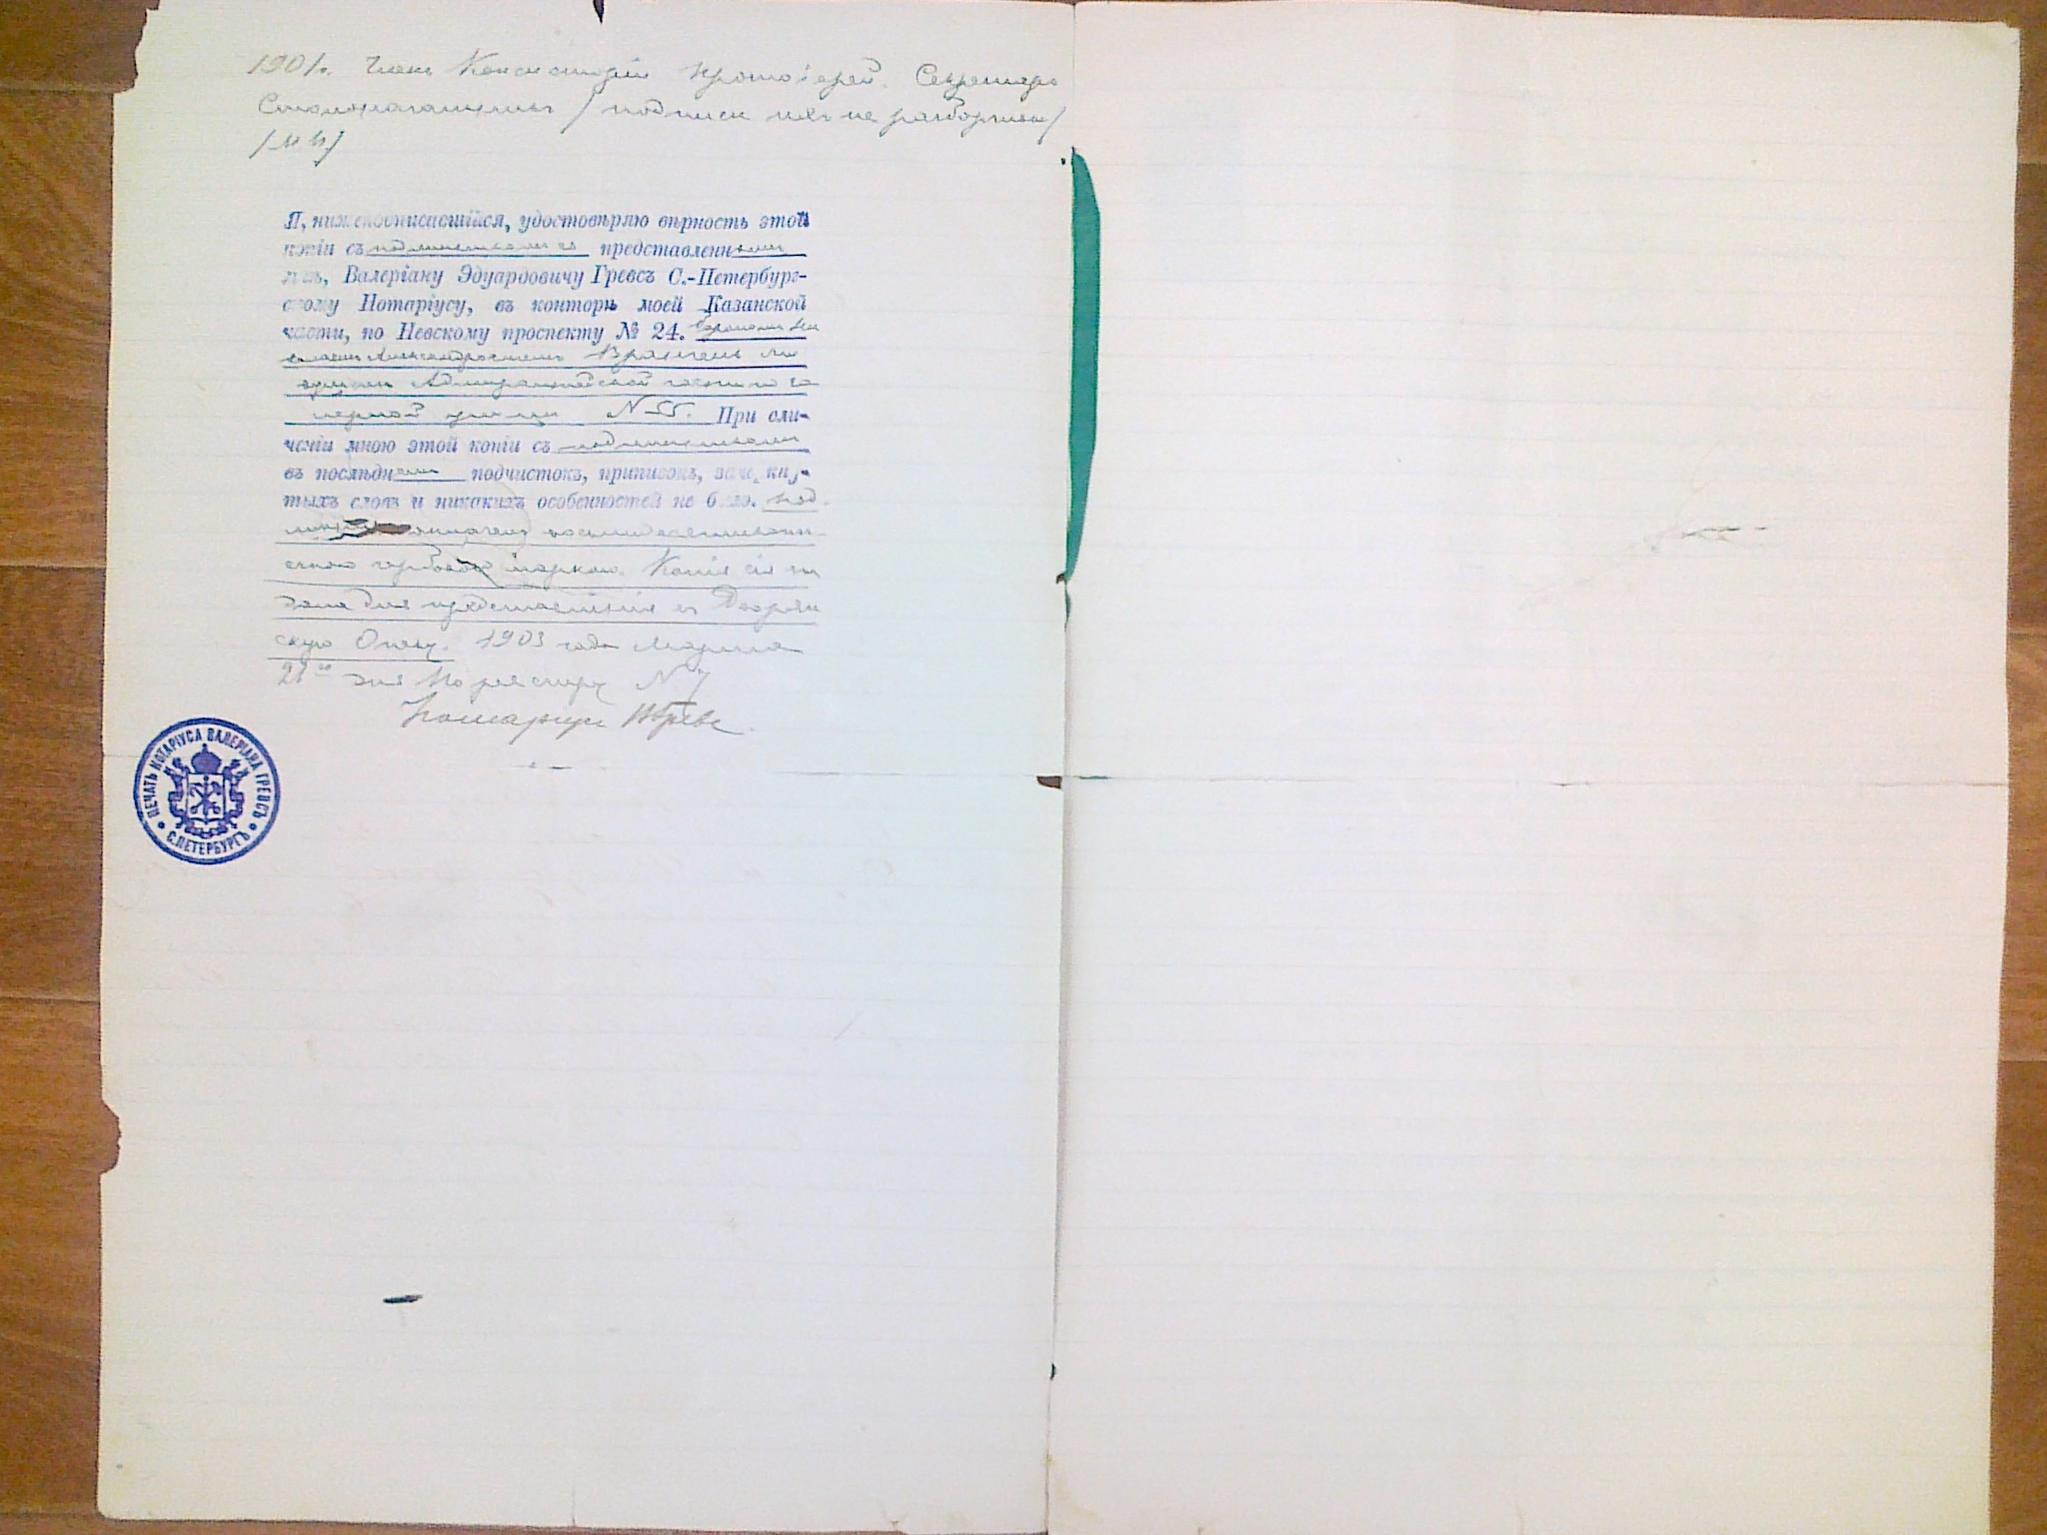 1901г. Членъ Консисторіи Протоіерей. Секретарь
Столоначальникъ / подписи ихъ не разборчивы /
/М.П./
Я, нижеподписавшійся, удостовѣряю вѣрность этой
копіи съ подлинникомъ ея представленнымъ
мнѣ, Валеріану Эдуардовичу Гревсъ С.-Петербург-
скому Нотаріусу, въ конторѣ моей Казанской
части, по Невскому проспекту № 24. Барономъ Ни
колаемъ Александровичемъ Врангель жи
вущимъ Адмиралтейской части по Га
лерной улицѣ N 55. При сли-
ченіи мною этой копіи съ подлинникомъ
въ послѣднемъ подчистокъ, приписокъ, зачеркну-
тыхъ словъ и никакихъ особенностей не было. Под
оплаченъ восьмидесятикопѣ
ечною гербовою маркою. Копія сія вы
дана для представленія въ Дворян
скую Опеку. 1903 года Марта
21го дня По реестру N
Нотаріусъ ВГревс
ПЕЧАТЬ НОТАРІУСА ВАЛЕРІАНА ГРЕВСЪ
С.ПЕТЕРБУРГЪ